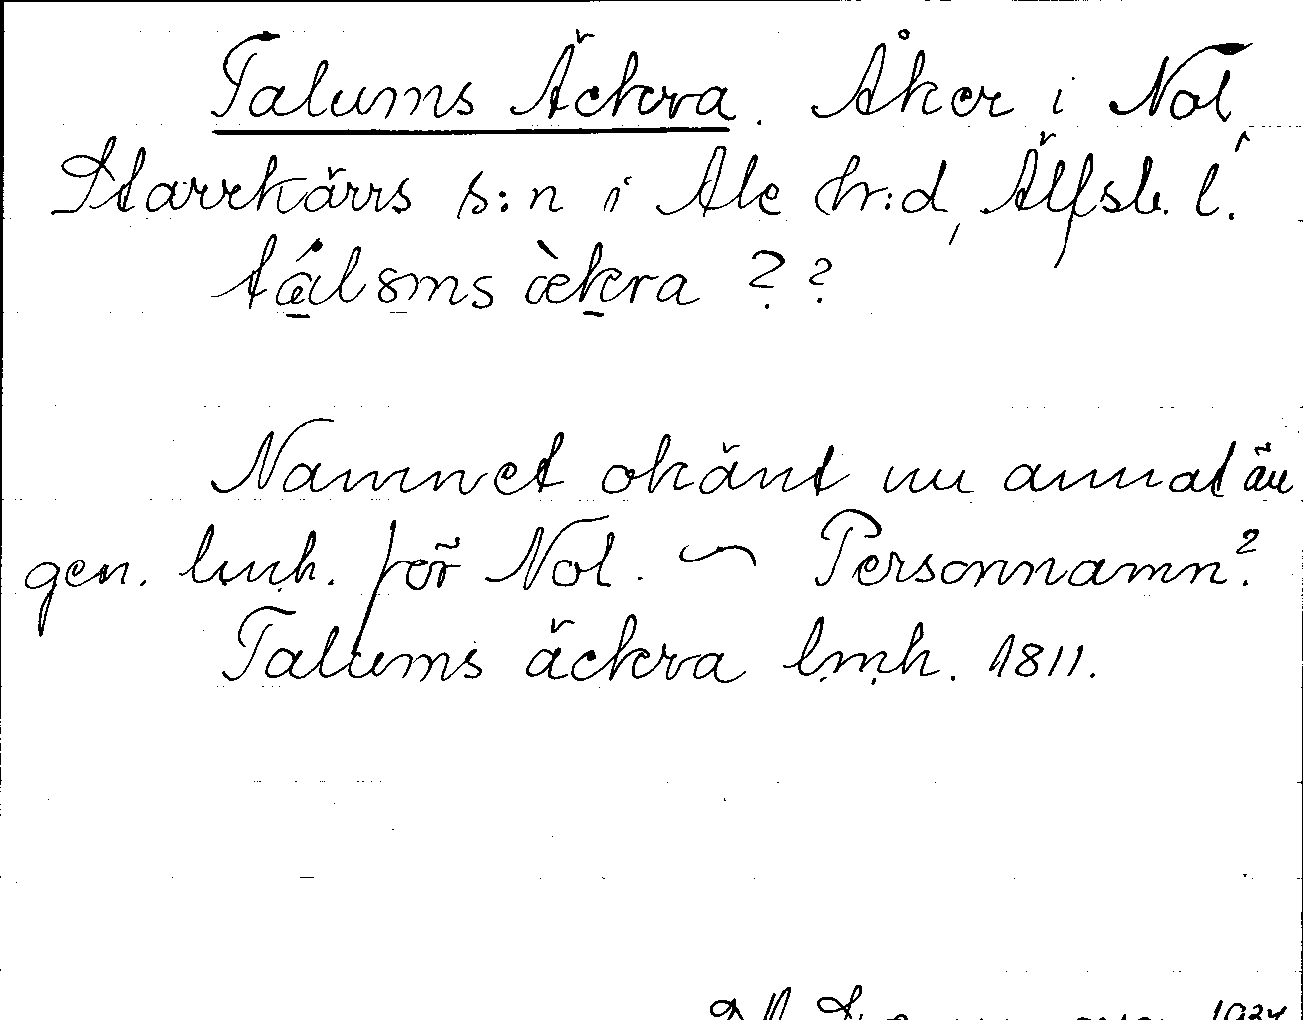 Talums Äckra. Åker i Nol,
Starrkärrs s:n i Ale hr:d, Älfsb. l.
Namnet okänt nu annat än
gen. lmh. för Nol. ~ Personnamn?
Talums äckra lmh. 1811.